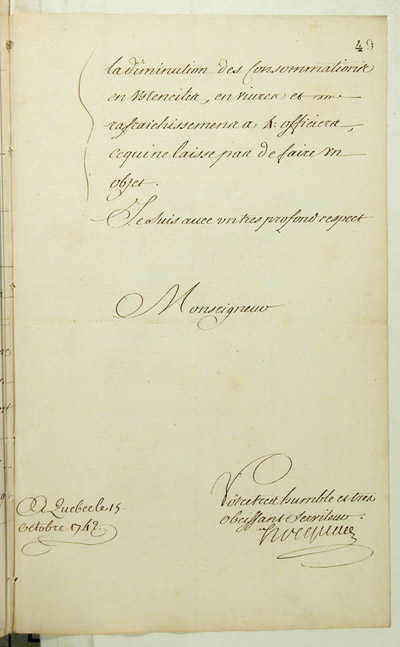 49
la diminution des Consommations
en Ustenciles, en vivres et en
rafraichissements aux officiers,
ce qui ne laisse pas de faire un
objet.
Je suis avec un tres profond respect
Monseigneur
A Quebec le 15
octobre 1742.
Vôtre tres humble et tres
obeissant Serviteur.
Hocquart